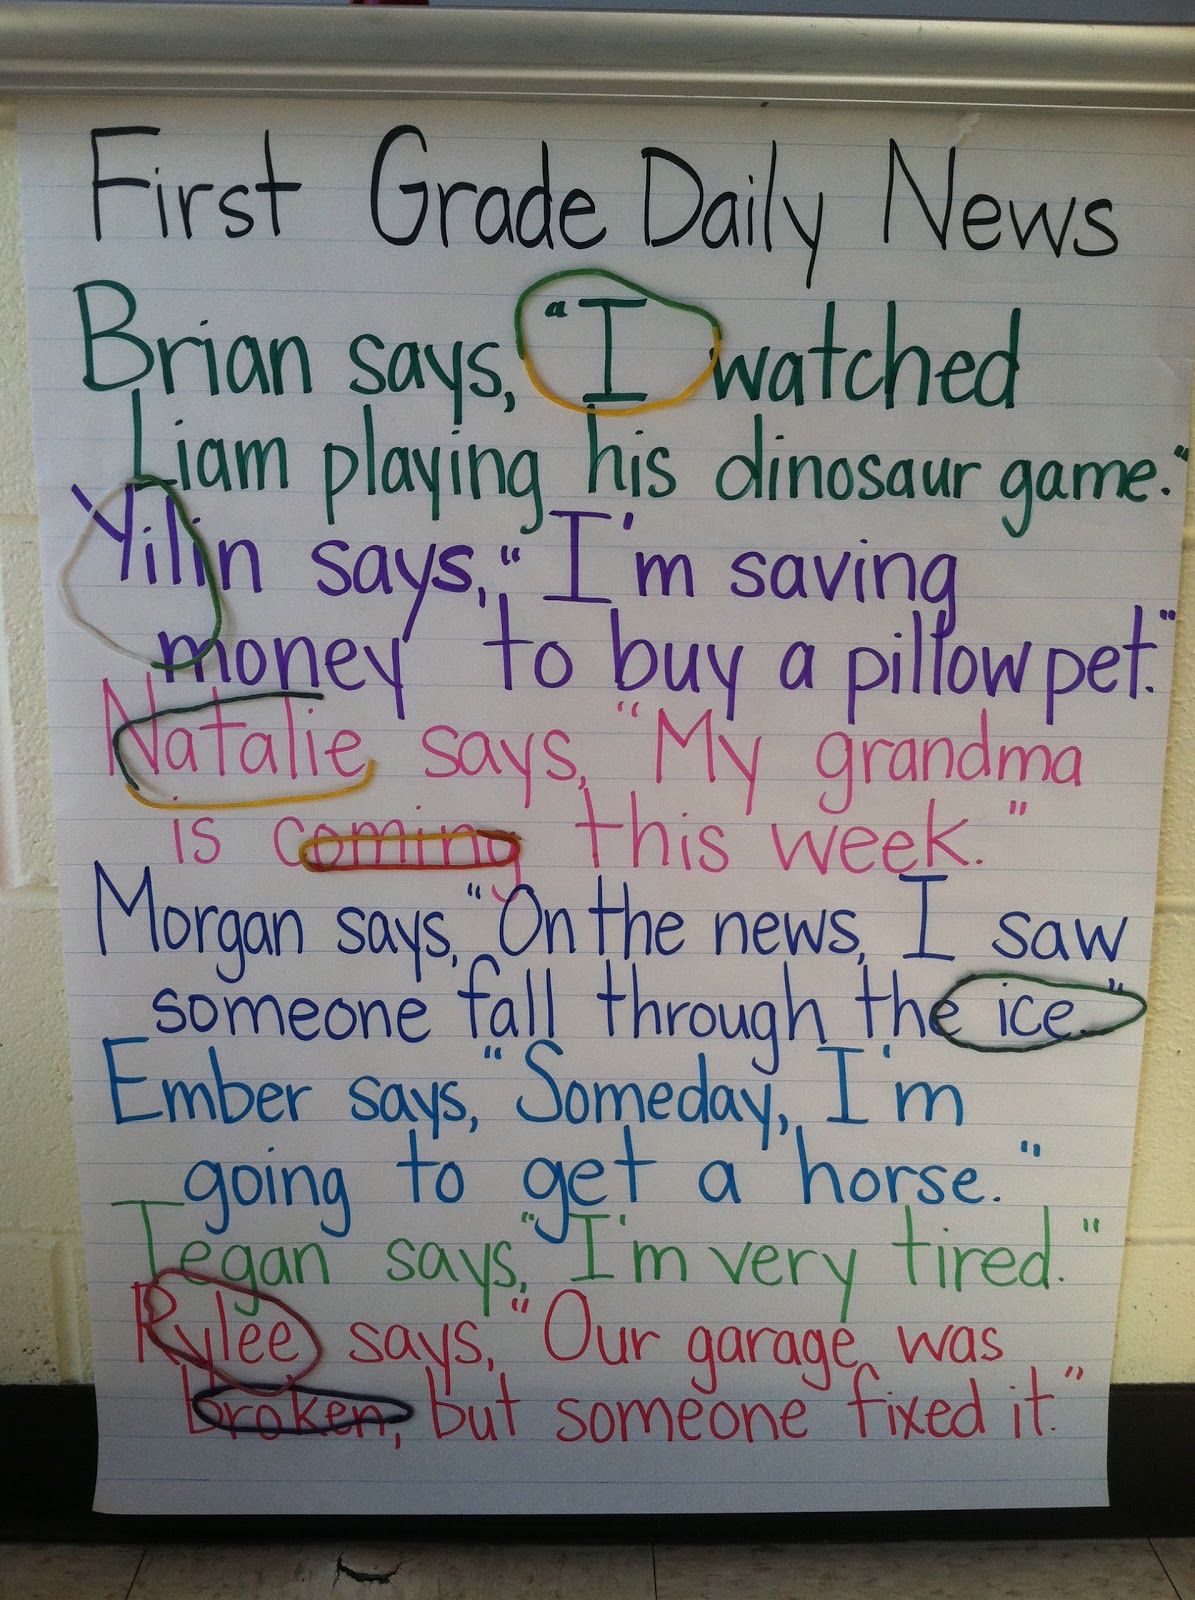 First Grade Daily News
Brian says, "I watched
Liam playing his dinosaur game."
Yilin says, "I'm saving
money to buy a pillow pet."
Natalie says, "My grandma
is coming this week."
Morgan says, "On the news, I saw
someone fall through the ice."
Ember says, "Someday, I'm
going to get a horse."
Tegan says, "I'm very tired."
Rylee says, "Our garage was
broken, but someone fixed it."